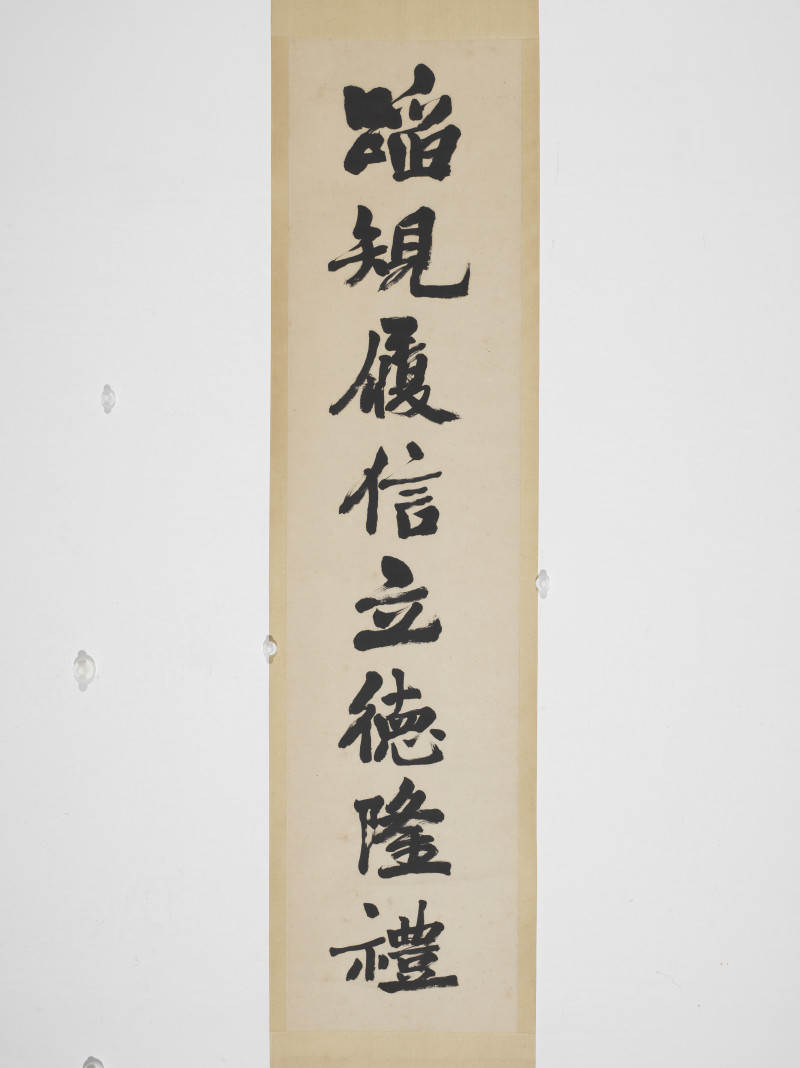 蹈規履信立德隆禮